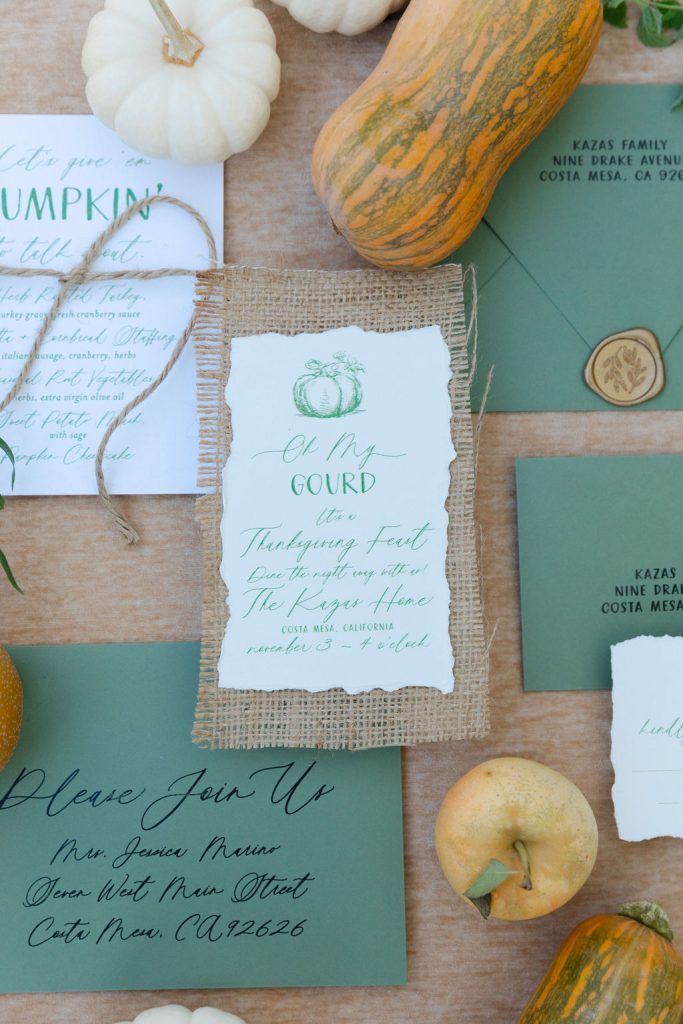 Let's give 'em
UMPKIN'
to talk about.
Herb Roasted Turkey
turkey gravy fresh cranberry sauce
Cornbread Stuffing
italian sausage, cranberry, herbs
Root Vegetables
herbs, extra virgin olive oil
Sweet Potato Mash
with sage
Pumpkin Cheesecake
KAZAS FAMILY
NINE DRAKE AVENU
COSTA MESA, CA 926
Oh My
GOURD
It's a
Thanksgiving Feast
Dine the night away with us!
The Kazas Home
COSTA MESA, CALIFORNIA
november 3 ~ 4 o'clock
KAZAS
NINE DRAK
COSTA MESA
kindl
Please Join Us
Mrs. Jessica Marino
Seven West Main Street
Costa Mesa, CA 92626